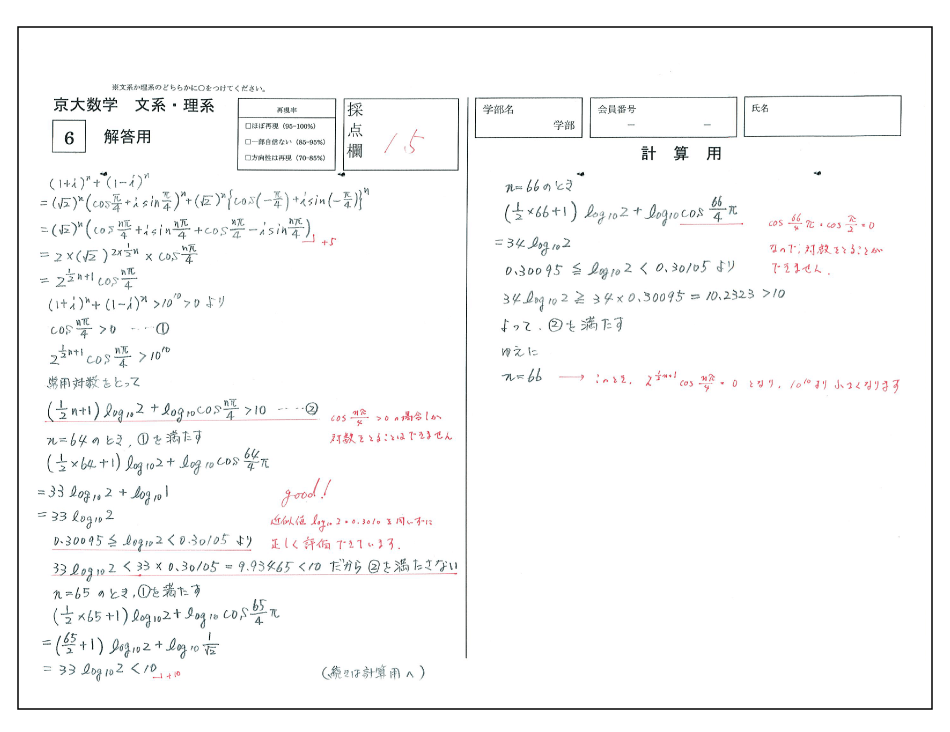 ※文系か理系のどちらかに○をつけてください。
京大数学 文系・理系
6 解答用
再現率
□ほぼ再現 (95-100%)
□一部自信ない (85-95%)
□方向性は再現 (70-85%)
採点欄
15
(1+i)^n+(1-i)^n
=(√2)^n(cos π/4+i sin π/4)^n+(√2)^n{cos(-π/4)+i sin(-π/4)}^n
=(√2)^n(cos nπ/4+i sin nπ/4+cos nπ/4-i sin nπ/4)
+5
=2×(√2)^{2×1/2n}×cos nπ/4
=2^{1/2n+1}cos nπ/4
(1+i)^n+(1-i)^n>10^10>0 より
cos nπ/4>0 ……①
2^{1/2n+1}cos nπ/4>10^10
常用対数をとって
(1/2n+1)log₁₀2+log₁₀cos nπ/4>10 ……②
cos nπ/4>0の場合しか
対数をとることはできません
n=64のとき,①を満たす
(1/2×64+1)log₁₀2+log₁₀cos 64/4π
=33log₁₀2+log₁₀1
=33log₁₀2
good!
近似値 log₁₀2=0.3010を用いずに
正しく評価できています.
0.30095≦log₁₀2<0.30105より
33log₁₀2<33×0.30105=9.93465<10だから②を満たさない
n=65のとき,①を満たす
(1/2×65+1)log₁₀2+log₁₀cos 65/4π
=(65/2+1)log₁₀2+log₁₀ 1/√2
=33log₁₀2<10
+10
(続きは計算用へ)
学部名 学部
会員番号 － －
氏名
計算用
n=66のとき
(1/2×66+1)log₁₀2+log₁₀cos 66/4π
=34log₁₀2
cos 66/4π=cos π/2=0
なので,対数をとることが
できません.
0.30095≦log₁₀2<0.30105より
34log₁₀2≧34×0.30095=10.2323>10
よって,②を満たす
ゆえに
n=66
→このとき, 2^{1/2n+1}cos nπ/4=0となり,10^10より小さくなります